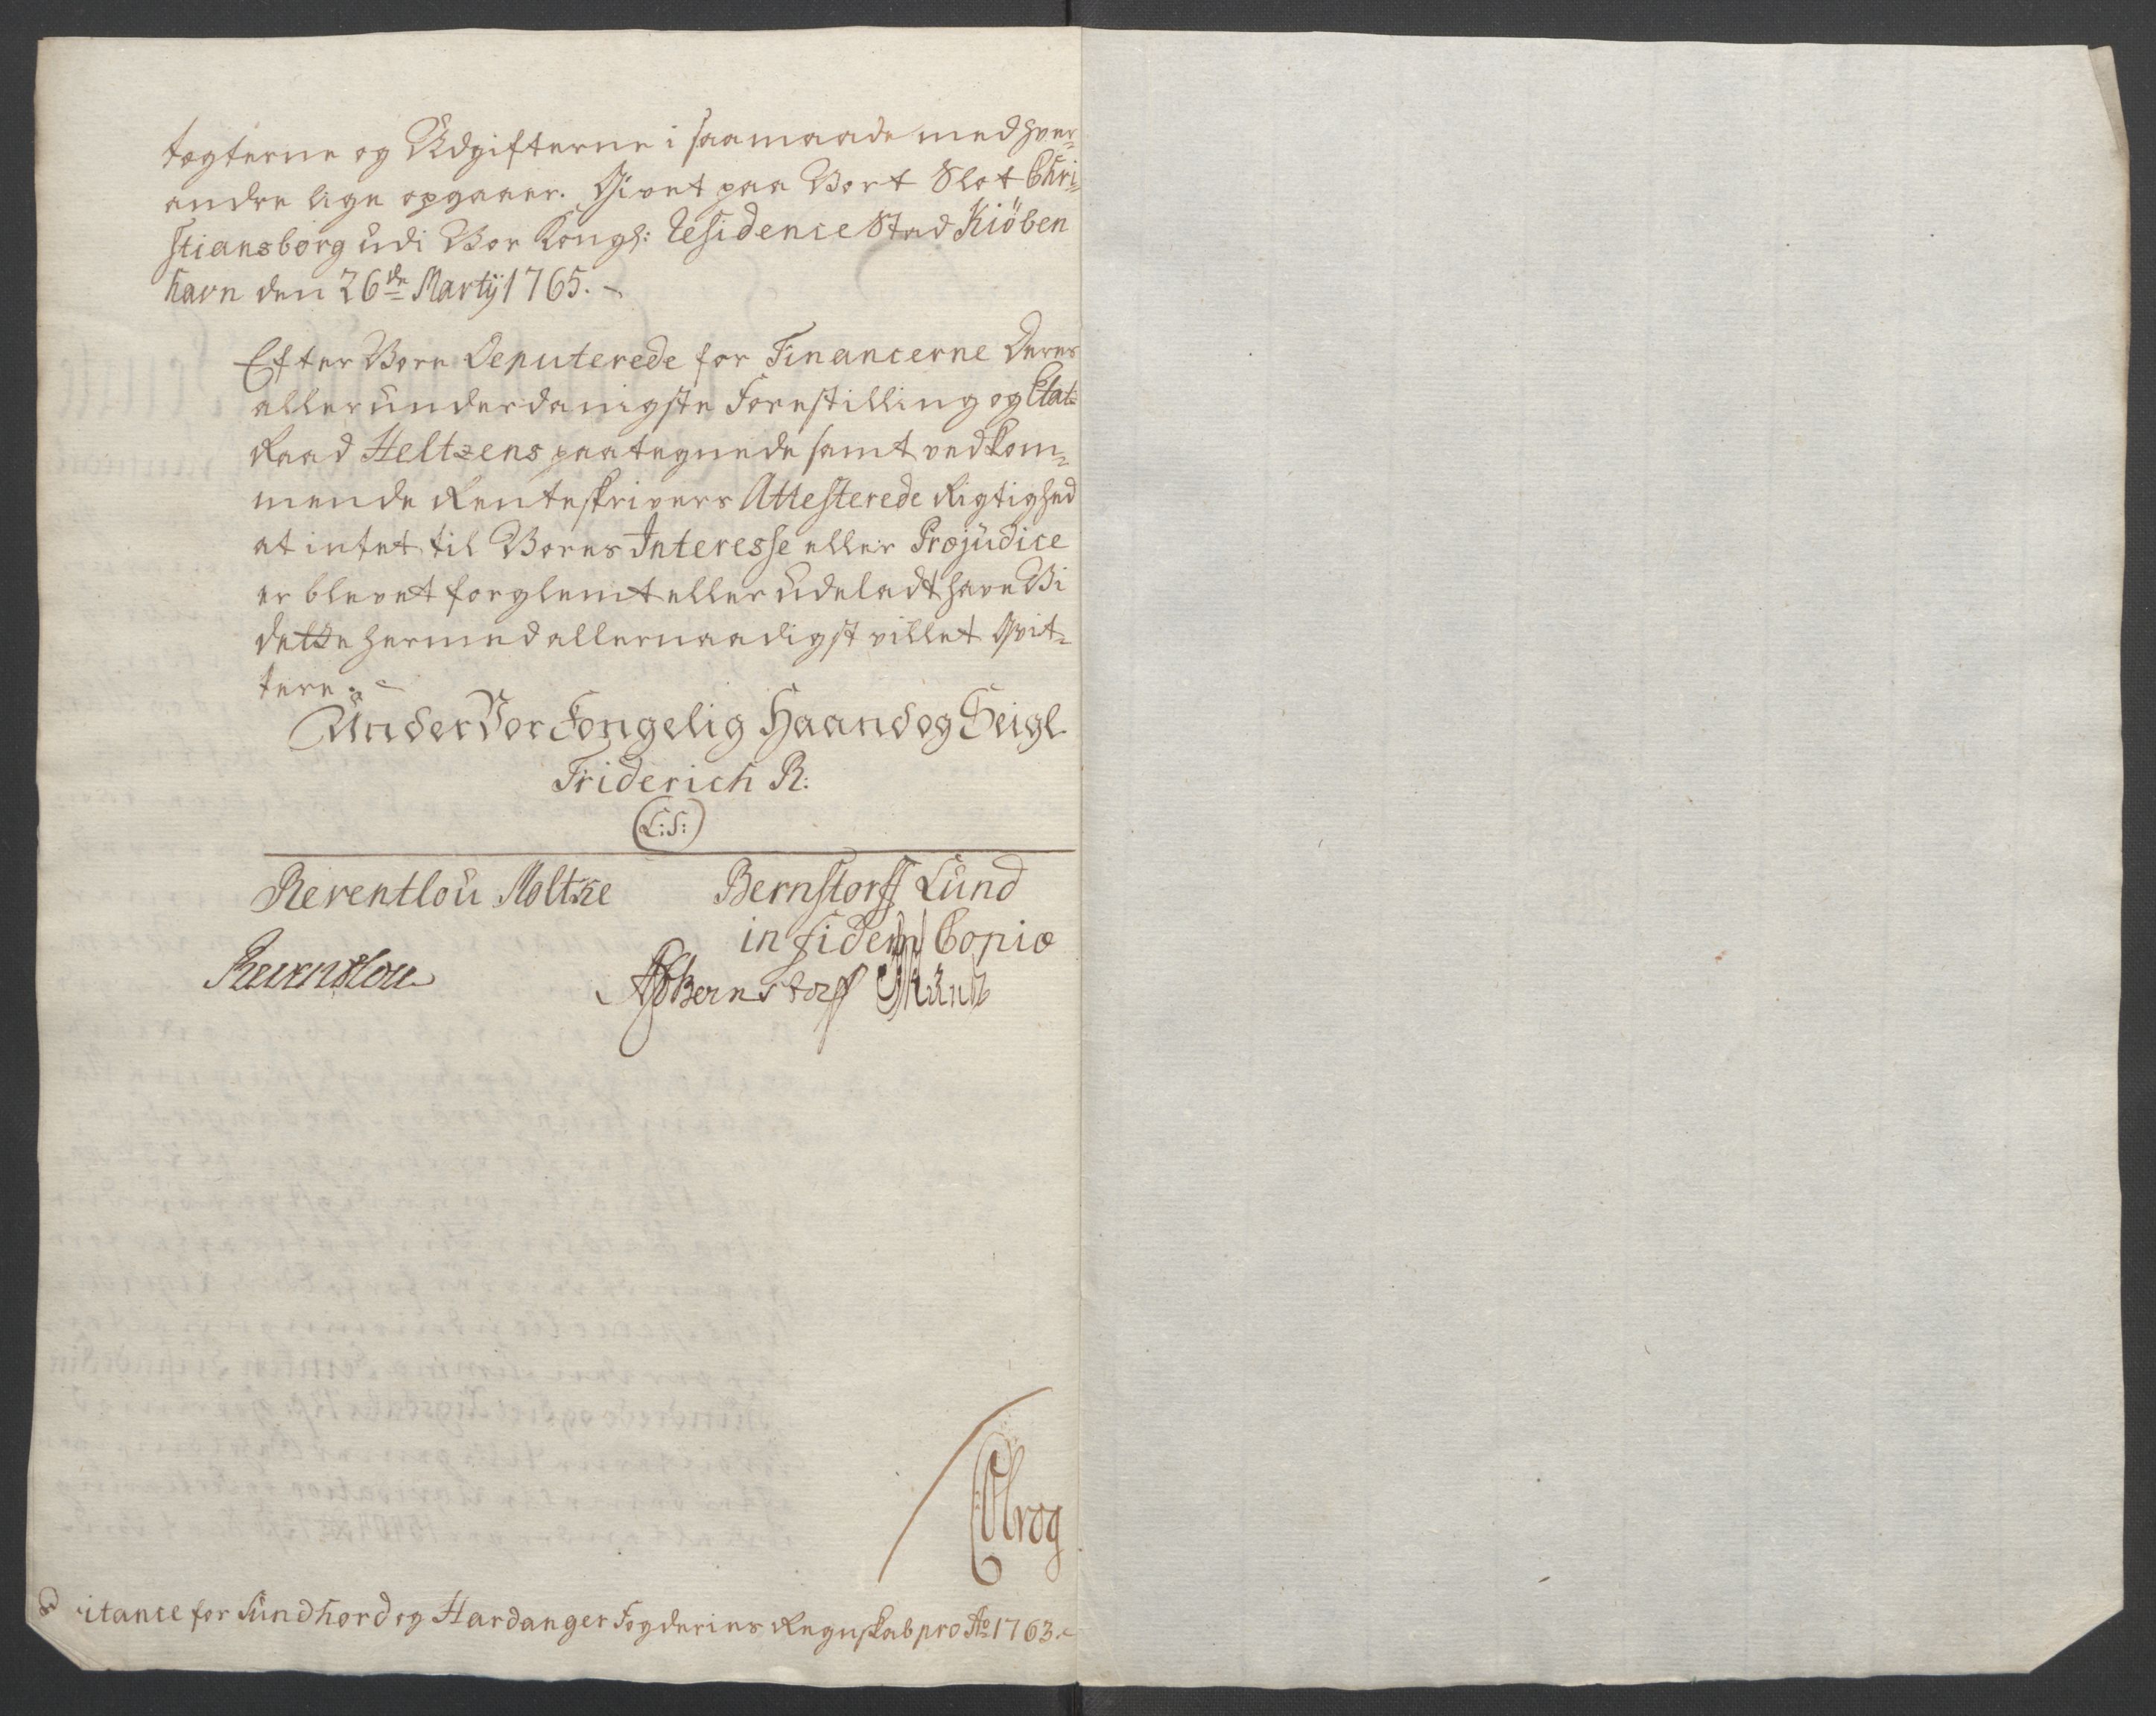 tegterne og Udgifterne i saamaade med hver-
andre lige opgaaer. Givet paa Vort Slot Chri-
stiansborg udi Vor Kongl: Residence Stad Kiöben
havn den 26de Martij 1765.
Efter Vore Deputerede for Financerne Deres
allerunderdanigste Forestilling og Etats
Raad Heltzens paategnede samt vedkom-
mende Renteskrivers Attesterede Rigtighed
at intet til Vores Interesse eller Præjudice
er blevet forglemt eller udeladt have Vi
dette hermed allernaadigst villet Qvit-
tere.
Under Vor Kongelig Haand og Seigl
Friderich R:
(L:S:)
Reventlou Moltke Bernstorff Lund
in fidem Copiæ
Reventlou
Bernstorff
itance for Sundhord og Hardanger Fogderies Regnskab pro Ao 1763.